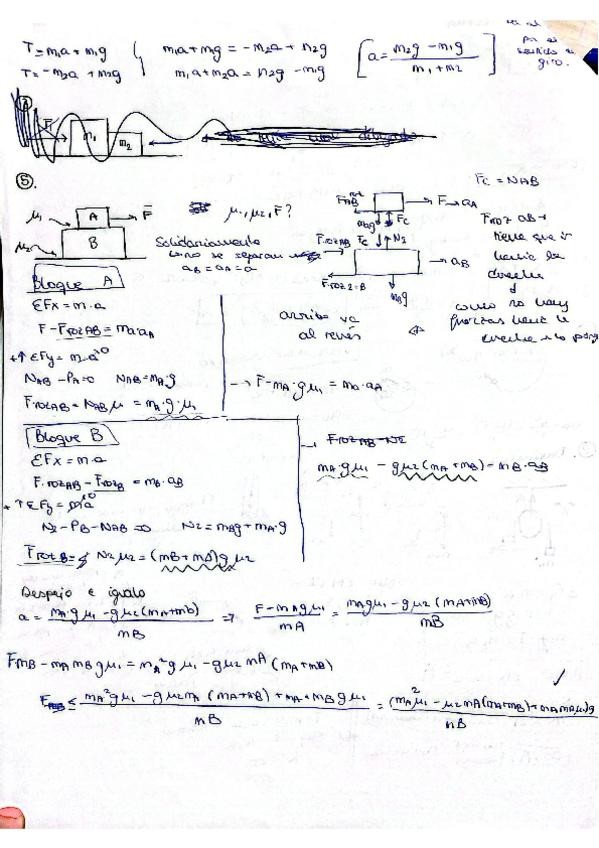 T = m₁a + m₁g
T = -m₂a + m₂g
m₁a + m₁g = -m₂a + m₂g
m₁a + m₂a = m₂g - m₁g
[a = m₂g - m₁g / m₁ + m₂]
giro.
m₁
m₂
⑤.
μ₁
A
F̄
μ₂
B
μ₁, μ₂, F̄?
Solidariamente
como se separan
aB = aA = a
F → aA
mAg
Fc
F̄roz AB
Fc
N2
aB
F̄roz 2-B
mBg
F̄c = NAB
Froz AB
tiene que ir
hacia la
derecha
como no hay
fuerzas hacia la
arriba va
al revés
Bloque A
ΣFx = m·a
F - Froz AB = ma·aA
+↑ ΣFy = m·a⁰
NAB - PA = 0 NAB = mA·g
F̄roz AB = NAB μ = mA·g·μ₁
→ F - mA·g μ₁ = ma·aA
Bloque B
ΣFx = m·a
F.roz AB - Froz B = mb·aB
+↑ ΣFy = ma⁰
N2 - PB - NAB = 0 N2 = mBg + mA·g
F̄roz B = N2 μ2 = (mB + mA)g μ2
mA g μ₁ - g μ2 (mA + mB) = mB·aB
Despejo e igualo
a = mA g μ₁ - g μ2 (mA + mb) / mB ⇒ F - mA g μ₁ / mA = mA g μ₁ - g μ2 (mA + mB) / mB
F mB - mA mB g μ₁ = mA² g μ₁ - g μ2 mA (mA + mB)
F ≤ mA² g μ₁ - g μ2 mA (mA + mB) + mA·mB g μ₁ / mB = (mA² μ₁ - μ2 mA (mA + mB) + mA mB μ₁)g / mB